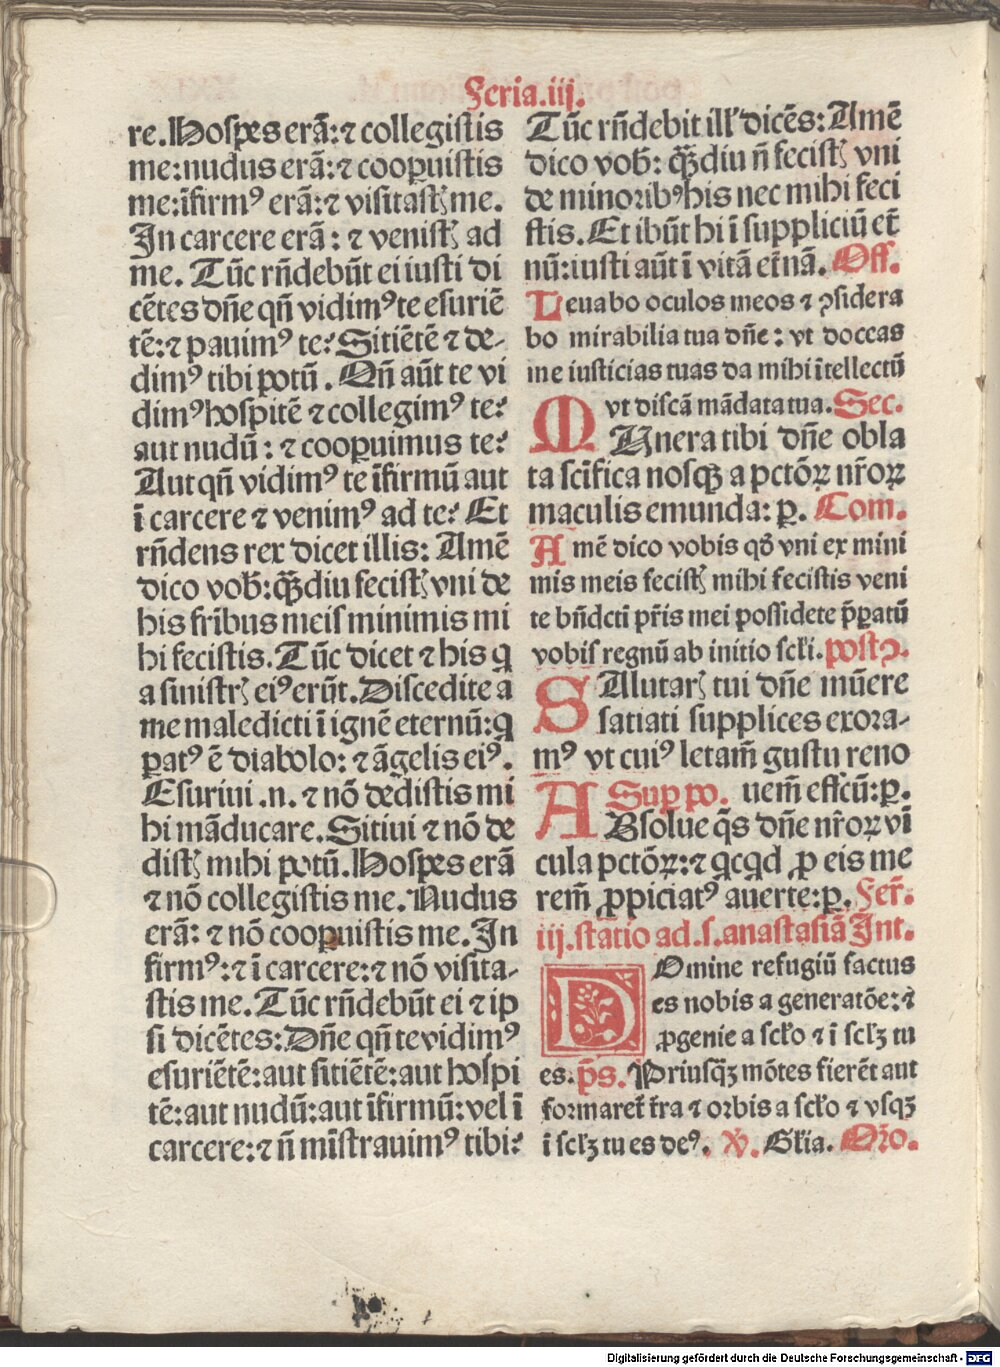 Feria.iij.
re. Hospes erā: ⁊ collegistis
me: nudus erā: ⁊ cooꝑuistis
me: īfirmꝰ erā: ⁊ visitastꝭ me.
In carcere erā: ⁊ venistꝭ ad
me. Tūc rn̄debūt ei iusti di
cētes dn̄e qn̄ vidimꝰ te esuriē
tē: ⁊ pauimꝰ te: Sitiētē ⁊ de-
dimꝰ tibi potū. Qn̄ aūt te vi
dimꝰ hospitē ⁊ collegimꝰ te:
aut nudū: ⁊ cooꝑuimus te:
Aut qn̄ vidimꝰ te īfirmū aut
ī carcere ⁊ venimꝰ ad te: Et
rn̄dens rex dicet illis: Amē
dico vob̄: qꝫdiu fecistꝭ vni de
his fribus meis minimis mi
hi fecistis. Tūc dicet ⁊ his q
a sinistrꝭ eiꝰ erūt. Discedite a
me maledicti ī ignē eternū: q
ꝑatꝰ ē diabolo: ⁊ āgelis eiꝰ.
Esuriui .n. ⁊ nō dedistis mi
hi māducare. Sitiui ⁊ nō de
distꝭ mihi potū. Hospes erā
⁊ nō collegistis me. Nudus
erā: ⁊ nō cooꝑuistis me. In
firmꝰ: ⁊ ī carcere: ⁊ nō visita-
stis me. Tūc rn̄debūt ei ⁊ ip
si dicētes: Dn̄e qn̄ te vidimꝰ
esuriētē: aut sitiētē: aut hospi
tē: aut nudū: aut īfirmū: vel ī
carcere: ⁊ n̄ mīstrauimꝰ tibi:
Tūc rn̄debit ill' dicēs: Amē
dico vob̄: qꝫdiu n̄ fecistꝭ vni
de minoribꝰ his nec mihi feci
stis. Et ibūt hi ī suppliciū et̄
nū: iusti aūt ī vitā et̄nā. Off.
Leuabo oculos meos ⁊ ꝯsidera
bo mirabilia tua dn̄e: vt doceas
me iusticias tuas da mihi ītellectū
vt discā mādata tua. Sec.
MUnera tibi dn̄e obla
ta scīfica nosqꝫ a pctōꝝ nr̄oꝝ
maculis emunda: p. Com.
Amē dico vobis qđ vni ex mini
mis meis fecistꝭ mihi fecistis veni
te bn̄dcti pr̄is mei possidete p̄ꝑatū
vobis regnū ab initio scl̄i. postꝯ.
SAlutarꝭ tui dn̄e mūere
satiati supplices exora-
mꝰ vt cuiꝰ letam̄ gustu reno
Suꝑ po. uem̄ effcū: p.
ABsolue qs̄ dn̄e nr̄oꝝ vī
cula pctōꝝ: ⁊ qcqd ꝓ eis me
rem̄ ꝓpiciatꝰ auerte: p. Fer̄.
iij. statio ad .s. anastasiā Int.
DOmine refugiū factus
es nobis a generatōe: ⁊
ꝓgenie a scl̄o ⁊ ī sclꝫ tu
es. ps. Priusqꝫ mōtes fierēt aut
formaret̄ t̄ra ⁊ orbis a scl̄o ⁊ vsqꝫ
ī sclꝫ tu es deꝰ. ℣. Gl̄ia. Or̄o.
Digitalisierung gefördert durch die Deutsche Forschungsgemeinschaft - DFG